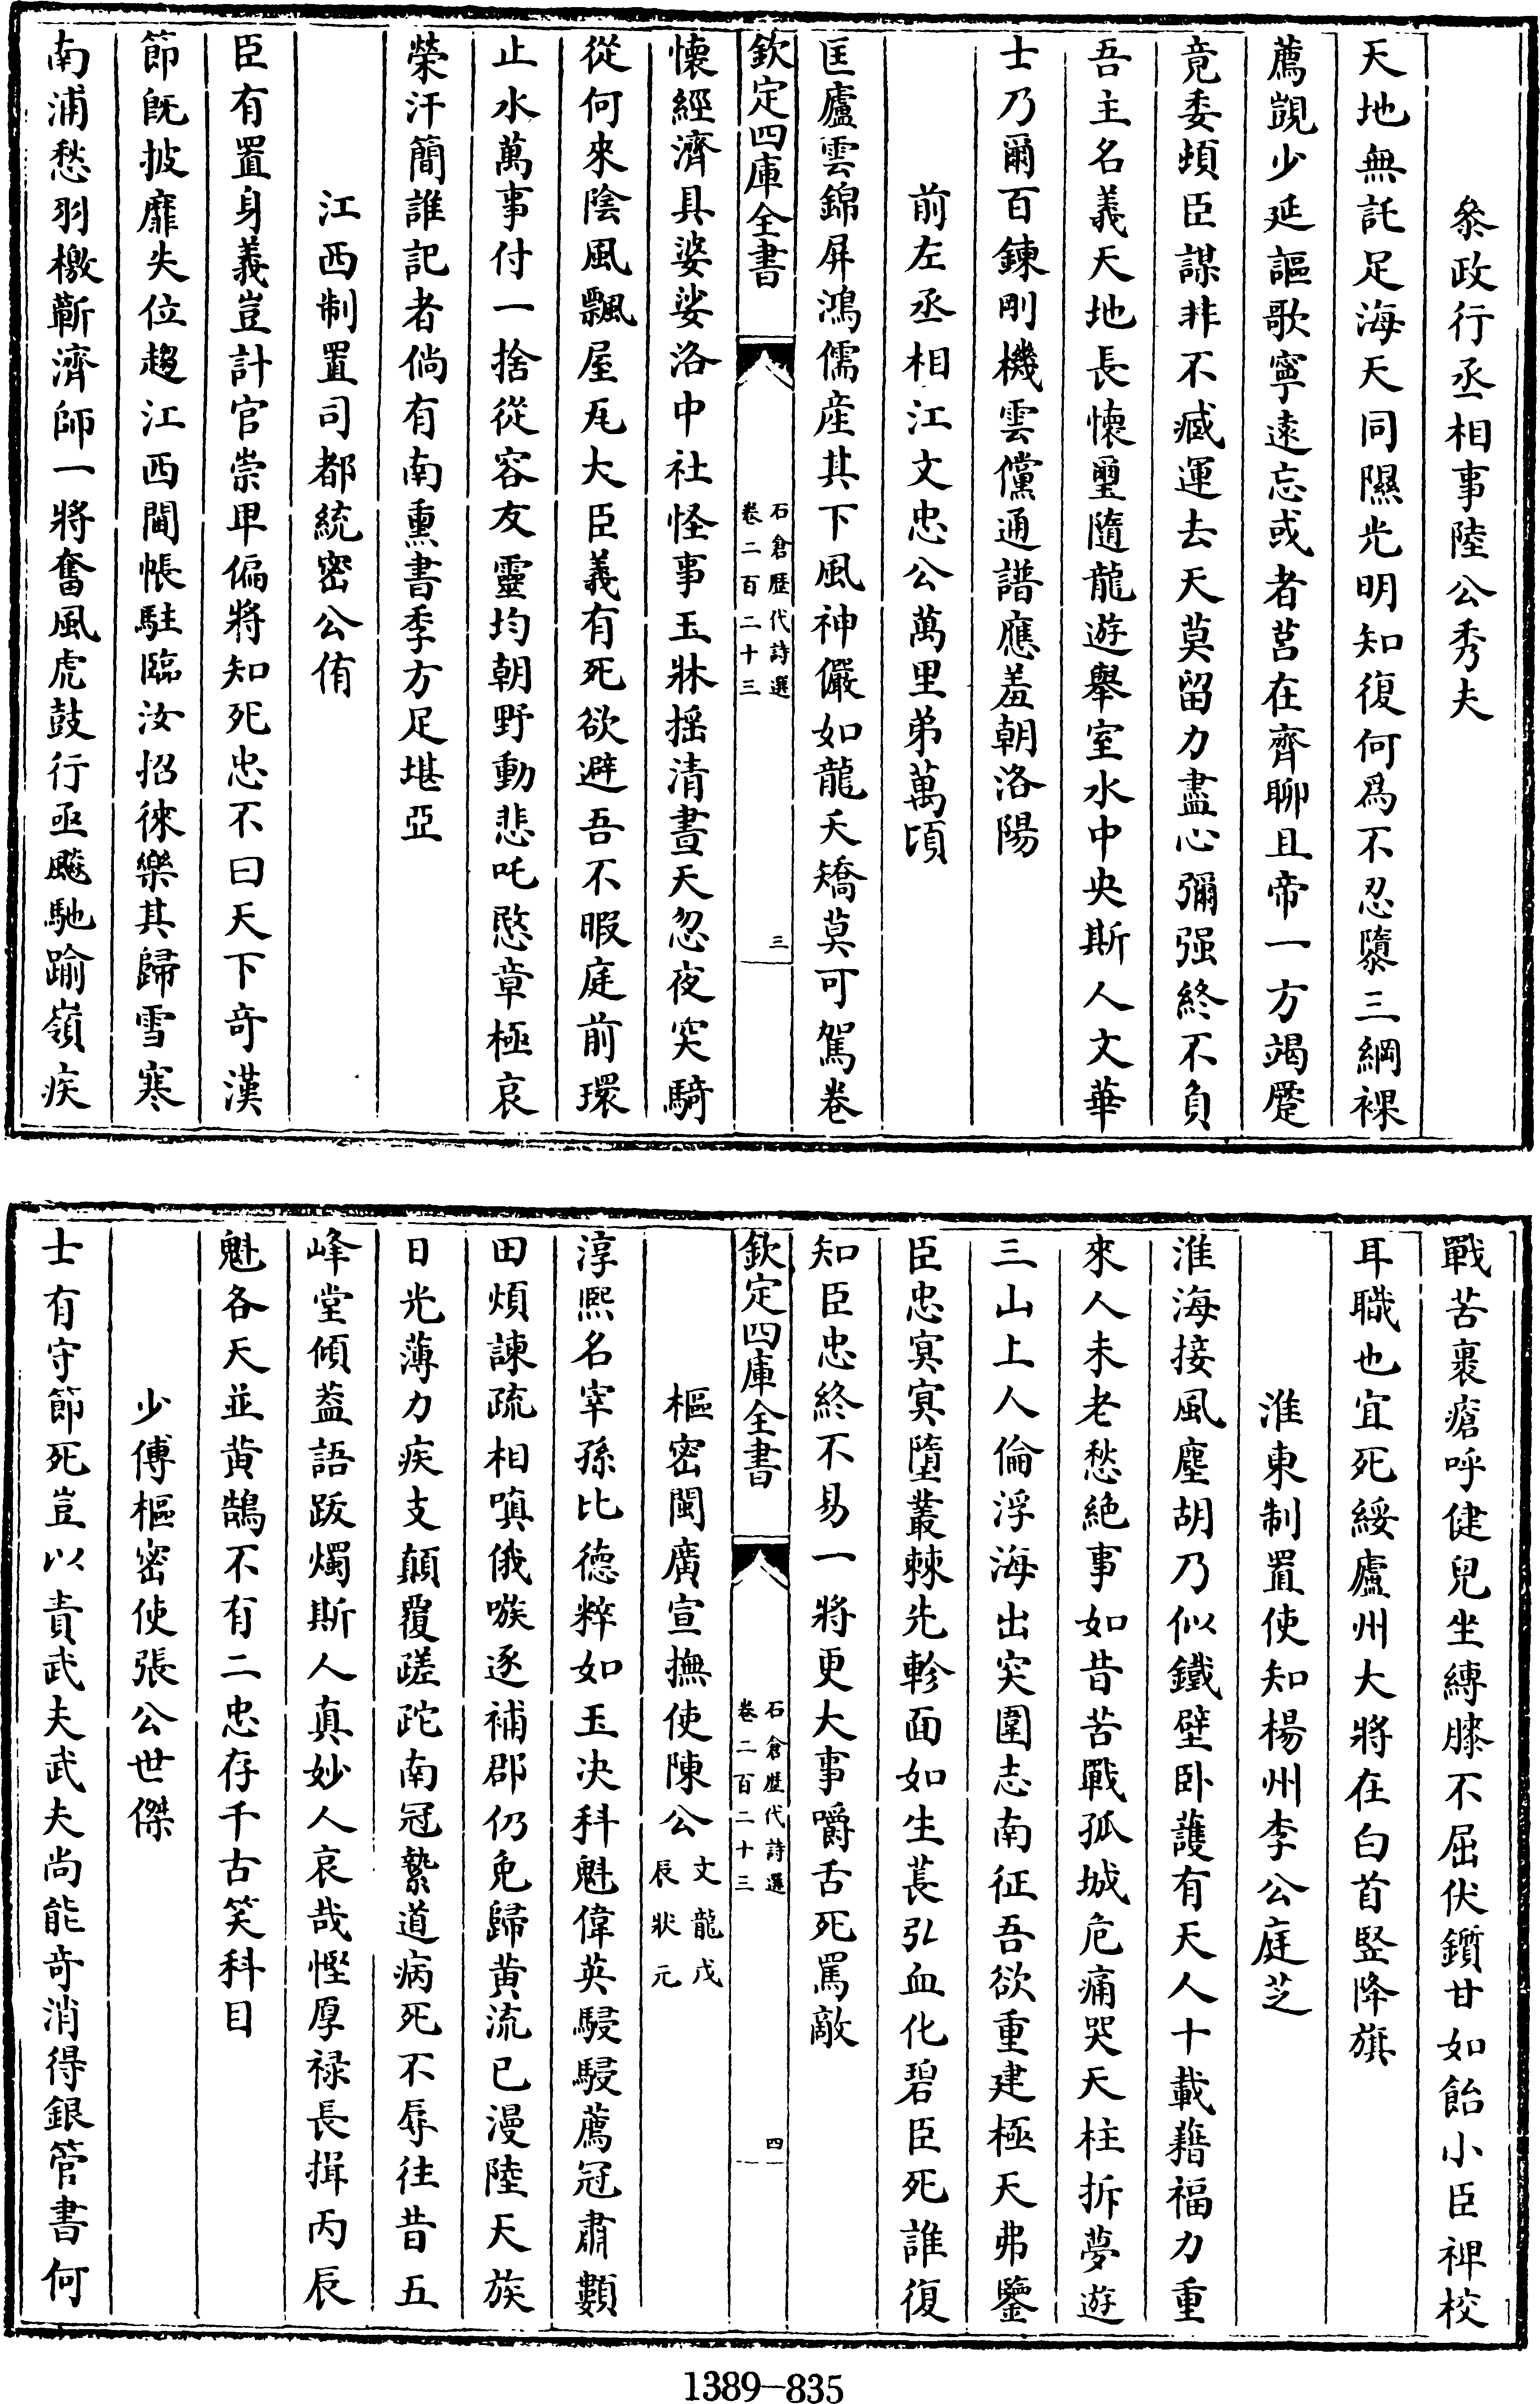 叅政行丞相事陸公秀夫
天地無託足海天同隰光明知復何為不忍隳三綱裸
薦覬少延謳歌寧遠忘或者莒在齊聊且帝一方竭蹙
竟委頓臣謀非不臧運去天莫留力盡心彌强終不負
吾主名義天地長懐璽隨龍遊舉室水中央斯人文華
士乃爾百鍊剛機雲儻通譜應羞朝洛陽
前左丞相江文忠公萬里弟萬頃
匡廬雲錦屏鴻儒産其下風神儼如龍夭矯莫可駕卷
欽定四庫全書
石倉歴代詩選
卷二百二十三
三
懐經濟具婆娑洛中社怪事玉牀摇清晝天忽夜突騎
從何來陰風飄屋瓦大臣義有死欲避吾不暇庭前環
止水萬事付一捨從容友靈均朝野動悲吒愍章極哀
榮汗簡誰記者倘有南熏書季方足堪亞
江西制置司都統密公侑
臣有置身義豈計官崇卑偏將知死忠不曰天下竒漢
節旣披靡失位趨江西閫帳駐臨汝招徠樂其歸雪寒
南浦愁羽檄蘄濟師一將奮風虎鼓行亟飈馳踰嶺疾
戰苦裹瘡呼健兒坐縳膝不屈伏鑕甘如飴小臣裨校
耳職也宜死綏廬州大將在白首竪降旗
淮東制置使知楊州李公庭芝
淮海接風塵胡乃似鐵壁卧護有天人十載藉福力重
來人未老愁絶事如昔苦戰孤城危痛哭天柱拆夢遊
三山上人倫浮海出突圍志南征吾欲重建極天弗鑒
臣忠㝠㝠墮叢棘先軫面如生萇弘血化碧臣死誰復
知臣忠終不易一將更大事嚼舌死罵敵
欽定四庫全書
石倉歴代詩選
卷二百二十三
四
樞密閩廣宣撫使陳公文龍戊
辰狀元
淳熙名宰孫比德粹如玉决科魁偉英駸駸薦冠肅顭
田煩諫疏相嗔俄嗾逐補郡仍免歸黄流已漫陸天族
日光薄力疾支顛覆蹉跎南冠縶道病死不辱往昔五
峰堂傾葢語跋燭斯人真妙人哀哉慳厚禄長揖丙辰
魁各天並黄鵠不有二忠存千古笑科目
少傅樞密使張公世傑
士有守節死豈以責武夫武夫尚能竒消得銀管書何
1389-835